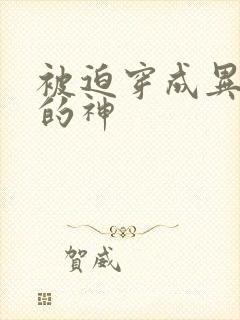 被迫穿成異
的神
賀威